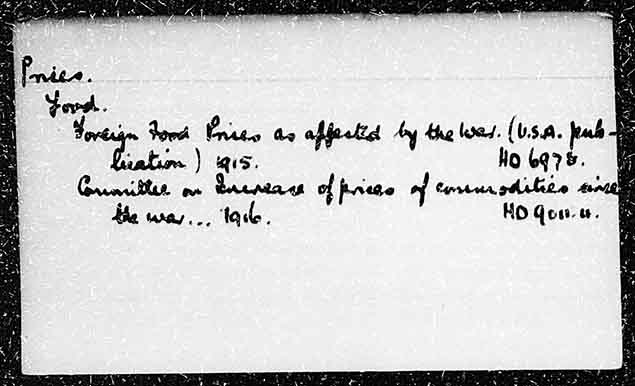 Prices.
Food.
Foreign Food Prices as affected by the war. (U.S.A. pub-
lication) 1915. HD 6978.
Committee on Increase of prices of commodities since
the war... 1916. HD 9011.11.